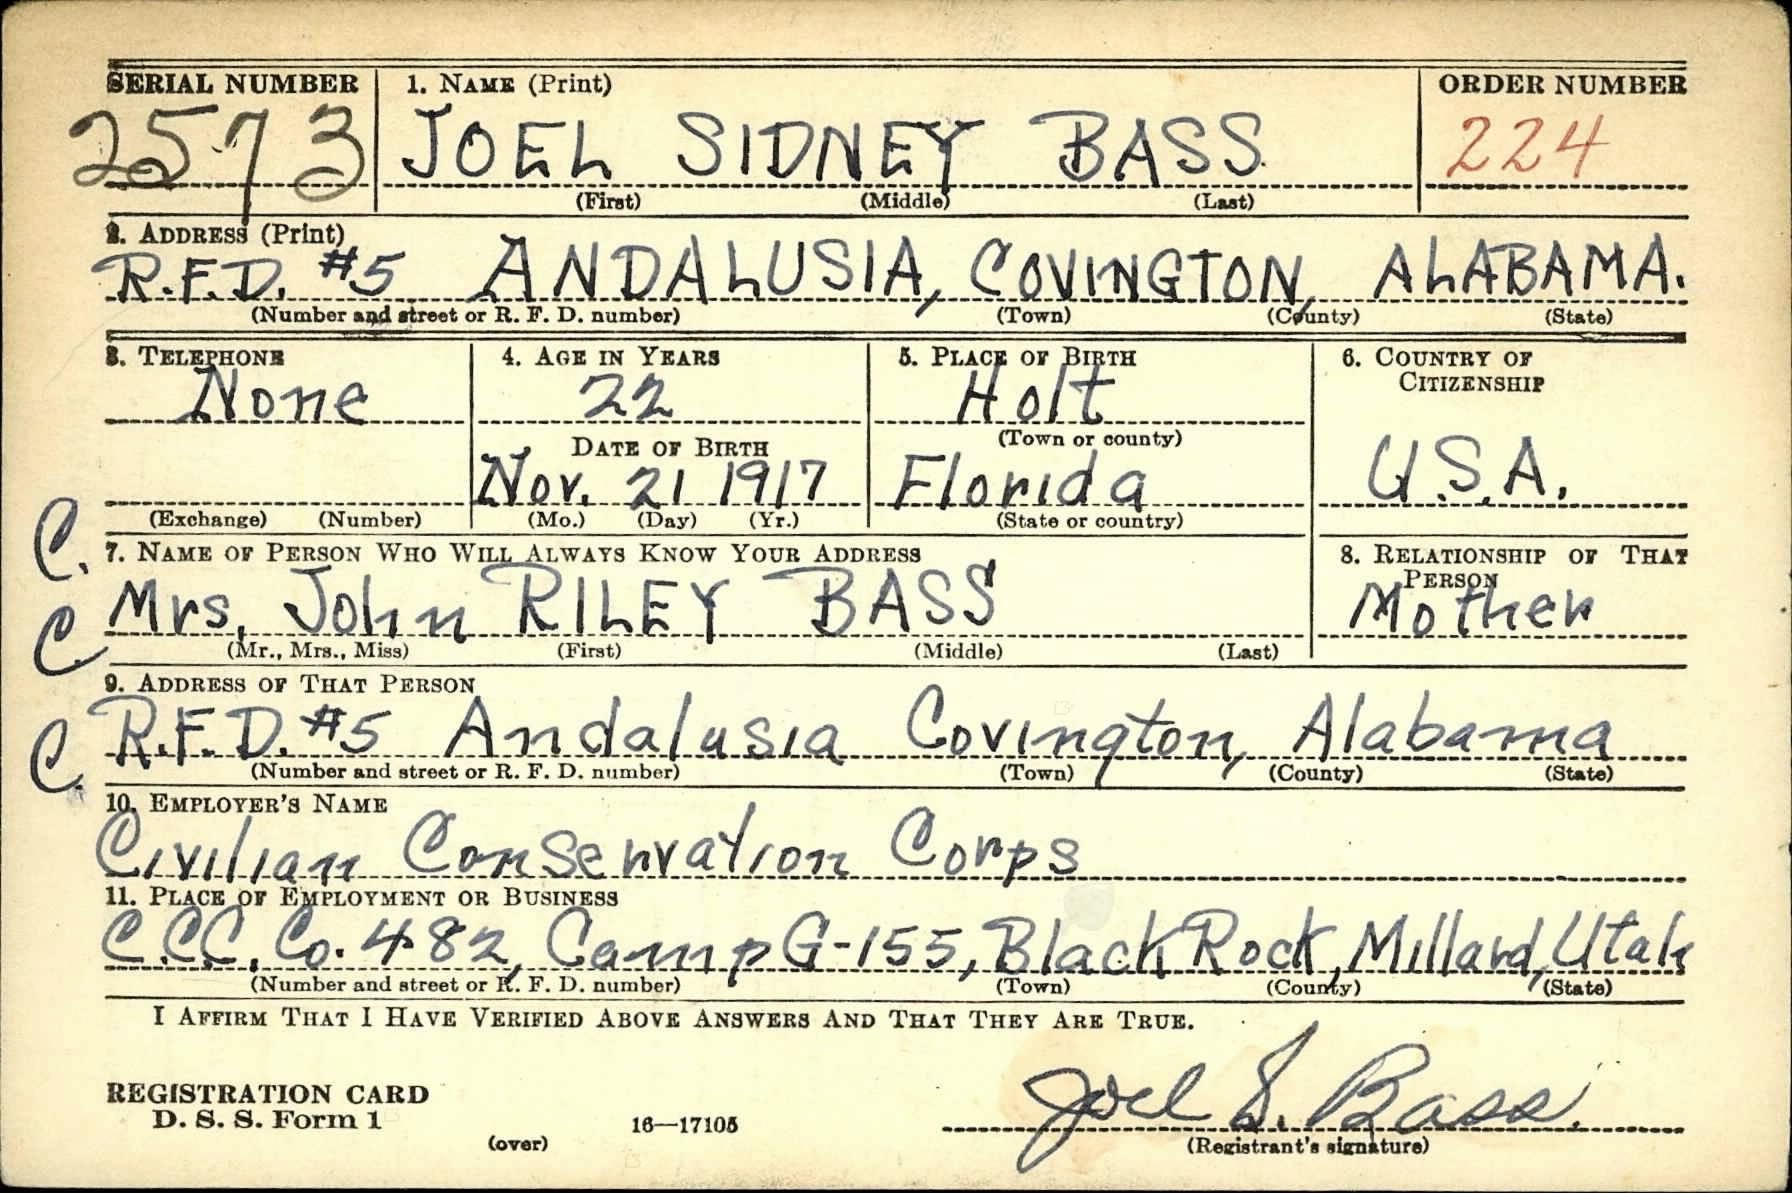 SERIAL NUMBER 1. NAME (Print) ORDER NUMBER
2573 JOEL SIDNEY BASS 224
(First) (Middle) (Last)
2. ADDRESS (Print)
R.F.D. #5 ANDALUSIA, COVINGTON, ALABAMA.
(Number and street or R. F. D. number) (Town) (County) (State)
3. TELEPHONE 4. AGE IN YEARS 5. PLACE OF BIRTH 6. COUNTRY OF CITIZENSHIP
None 22 Holt
(Town or county)
DATE OF BIRTH
Nov. 21 1917 Florida U.S.A.
(Exchange) (Number) (Mo.) (Day) (Yr.) (State or country)
C. 7. NAME OF PERSON WHO WILL ALWAYS KNOW YOUR ADDRESS 8. RELATIONSHIP OF THAT PERSON
C Mrs. John RILEY BASS Mother
(Mr., Mrs., Miss) (First) (Middle) (Last)
9. ADDRESS OF THAT PERSON
C. R.F.D. #5 Andalusia Covington, Alabama
(Number and street or R. F. D. number) (Town) (County) (State)
10. EMPLOYER'S NAME
Civilian Conservation Corps
11. PLACE OF EMPLOYMENT OR BUSINESS
C.C.C. Co. 482, Camp G-155, Black Rock, Millard, Utah
(Number and street or R. F. D. number) (Town) (County) (State)
I AFFIRM THAT I HAVE VERIFIED ABOVE ANSWERS AND THAT THEY ARE TRUE.
REGISTRATION CARD
D. S. S. Form 1 16—17105 Joel S. Bass.
(over) (Registrant's signature)